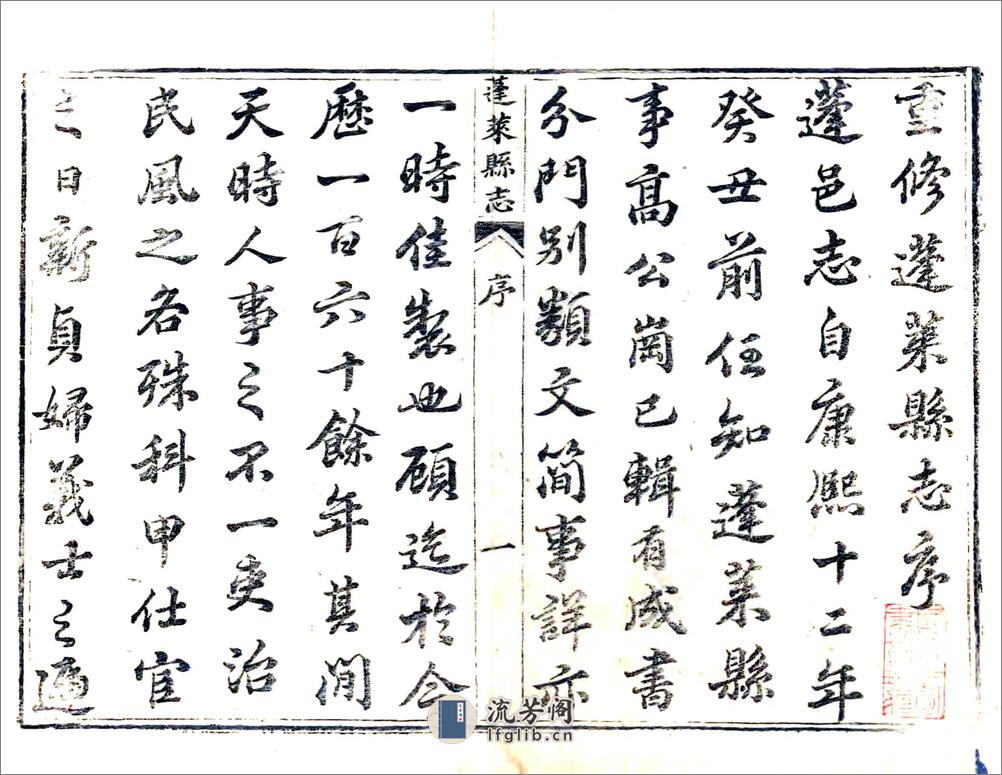 重修蓬萊縣志序
蓬邑志自康熙十二年
癸丑前任知蓬萊縣
事高公崗已輯有成書
分門別類文簡事詳亦
蓬萊縣志
序
一
一時佳製也顧迄於今
歷一百六十餘年其間
天時人事之不一吏治
民風之各殊科甲仕宦
之日新貞婦義士之遞
流芳阁
lfglib.cn